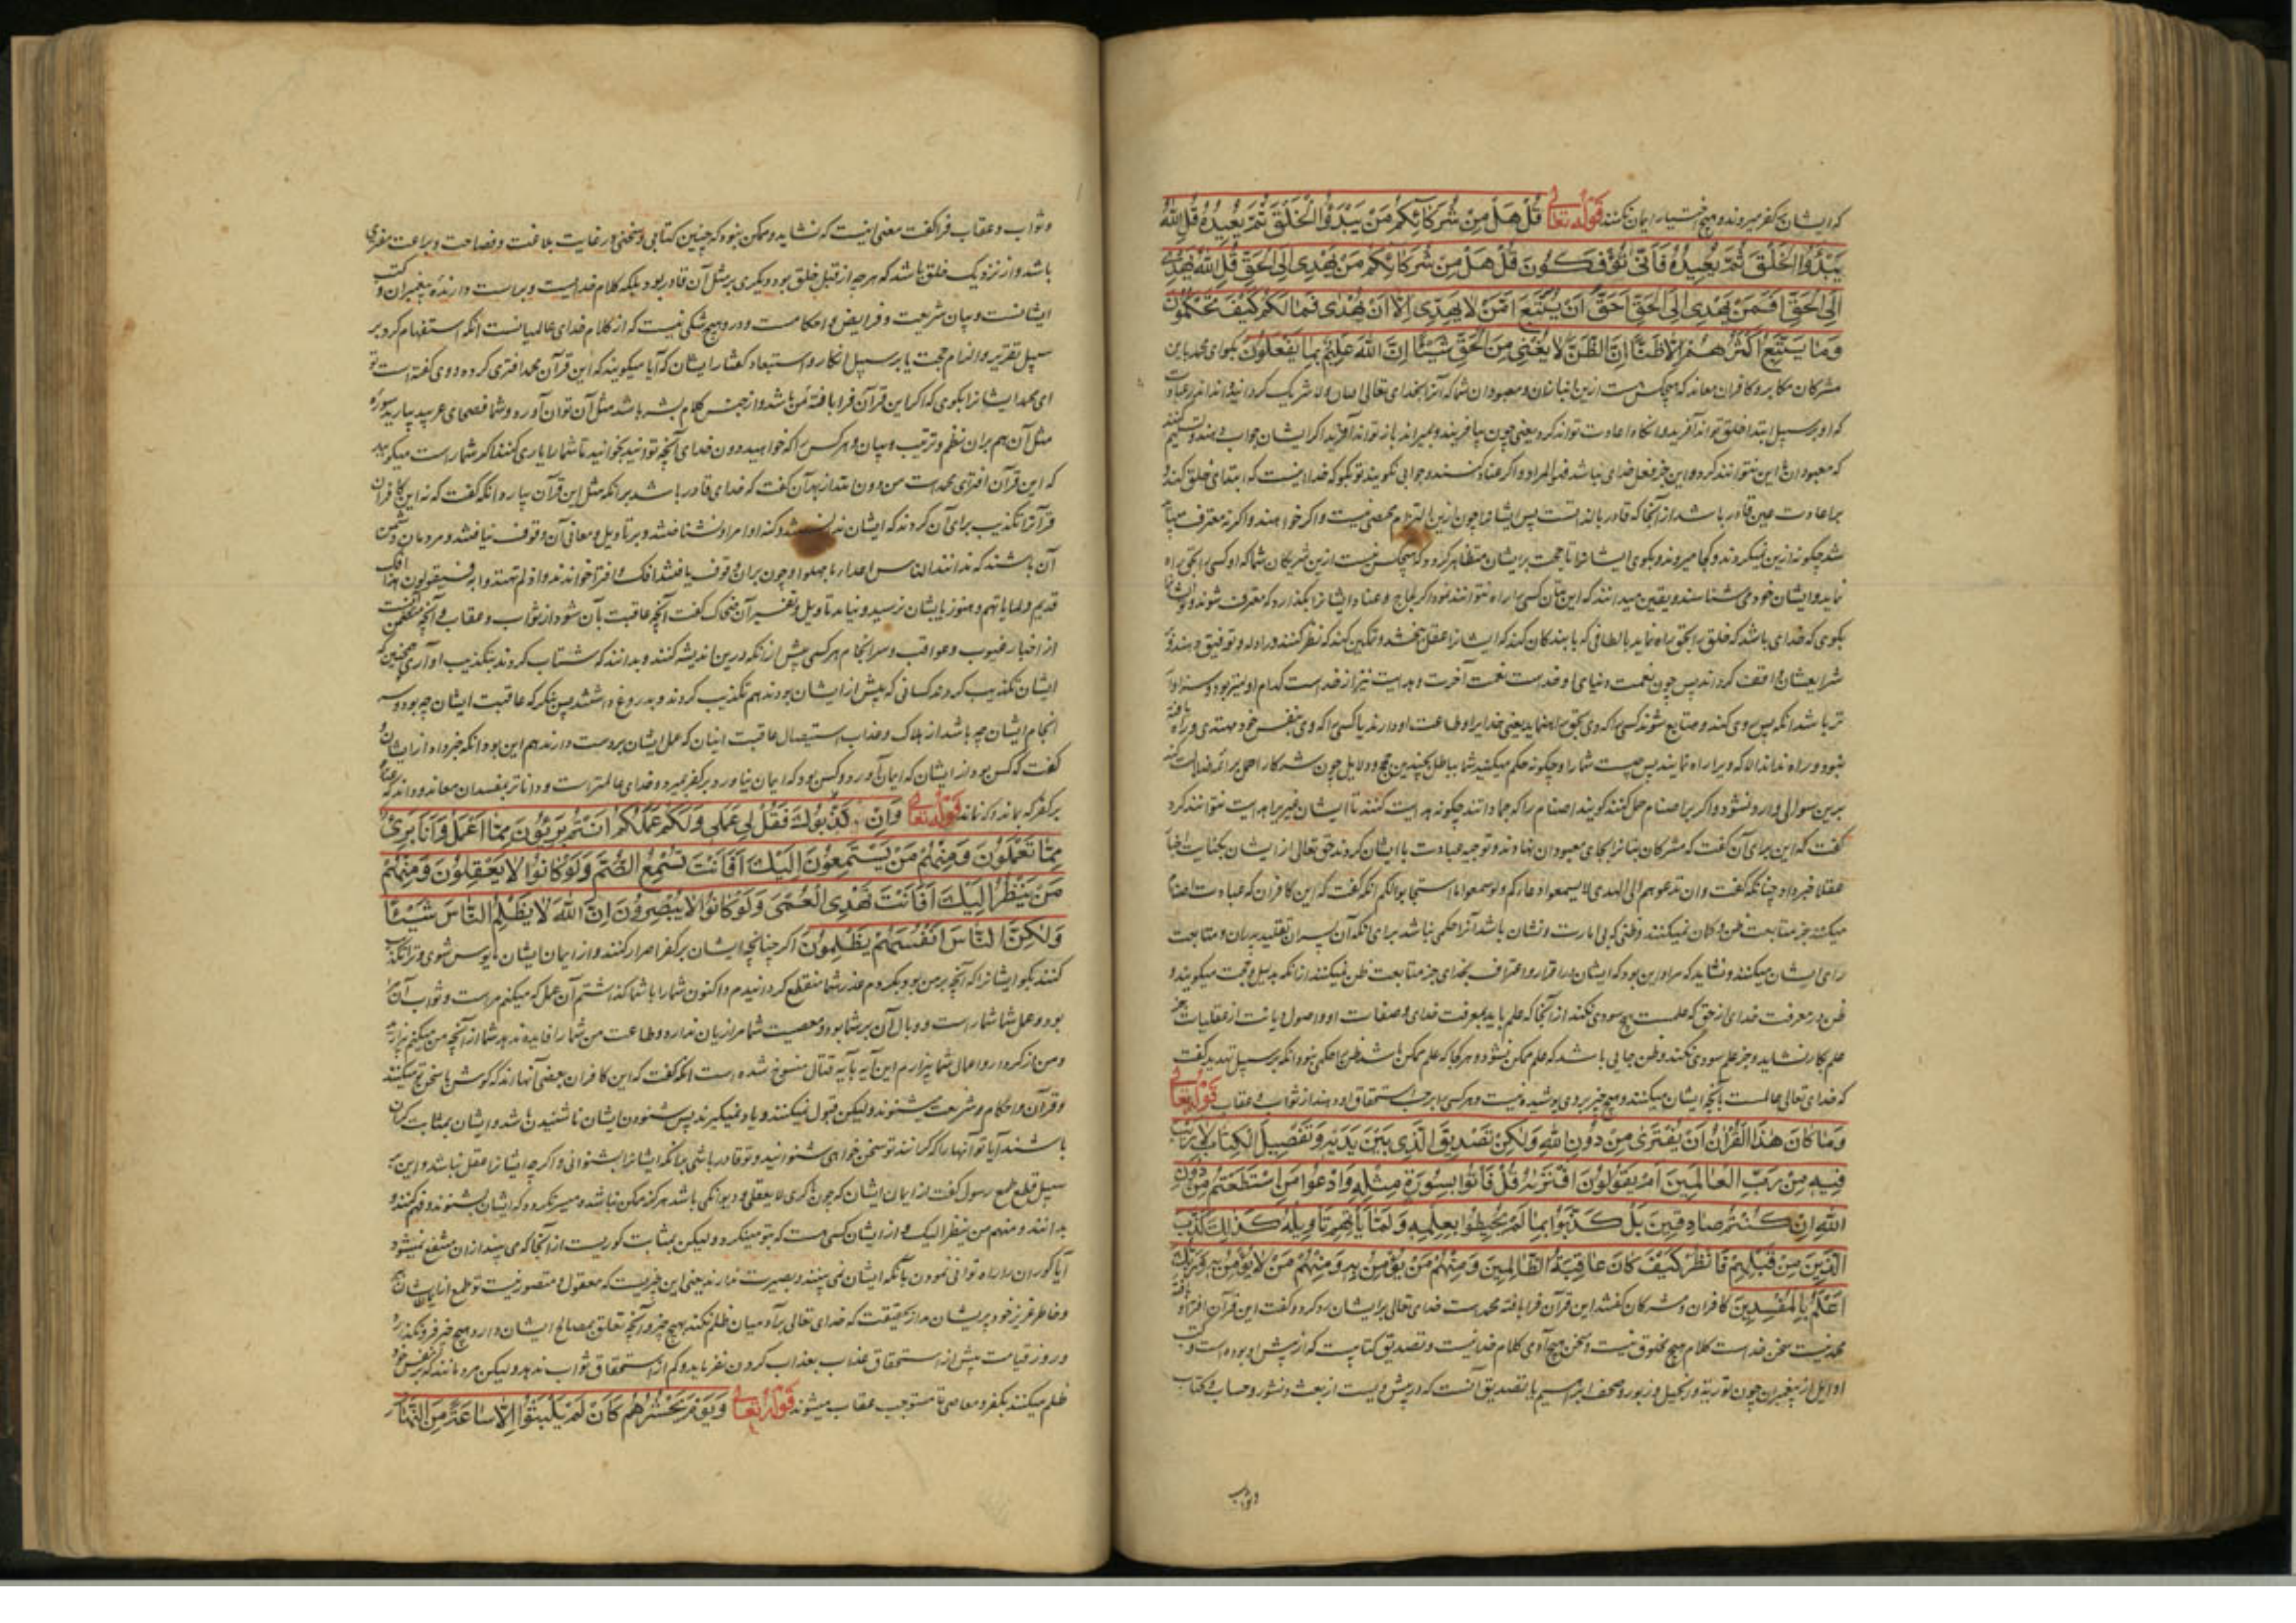 که ایشان بر کفر میروند و هیچ اختیار ایمان نکنند قوله تعالی قُلْ هَلْ مِنْ شُرَكَائِكُمْ مَنْ يَبْدَؤُا الْخَلْقَ ثُمَّ يُعِيدُهُ قُلِ اللهُ
يَبْدَؤُا الْخَلْقَ ثُمَّ يُعِيدُهُ فَأَنَّى تُؤْفَكُونَ قُلْ هَلْ مِنْ شُرَكَائِكُمْ مَنْ يَهْدِي إِلَى الْحَقِّ قُلِ اللهُ يَهْدِي
إِلَى الْحَقِّ أَفَمَنْ يَهْدِي إِلَى الْحَقِّ أَحَقُّ أَنْ يُتَّبَعَ أَمَّنْ لَا يَهِدِّي إِلَّا أَنْ يُهْدَى فَمَا لَكُمْ كَيْفَ تَحْكُمُونَ
وَمَا يَتَّبِعُ أَكْثَرُهُمْ إِلَّا ظَنًّا إِنَّ الظَّنَّ لَا يُغْنِي مِنَ الْحَقِّ شَيْئًا إِنَّ اللهَ عَلِيمٌ بِمَا يَفْعَلُونَ بکوای محمد باین
مشرکان مکابر و کافران معاند که هیچکس هست ازین انبازان و معبودان شما که آنرا بخدای تعالی
که او بر سبیل ابتدا خلق تواند آفرید و انکاه اعادت تواند کرد یعنی چون بیافریند و بمیراند باز تواند آفرید اکر ایشان جواب دهند و تسلیم کنند
که معبودان ما این نتوانند کرد و این جز فعل خدای نباشد فهو المراد و اکر عناد کنند و جوابی نکویند تو بکو که خداست که ابتدای خلق کند و
بر اعادت عین قادر باشد از آنجا که قادر بالذاتست پس ایشانرا چون ازین التزام محیصی نیست و اکر خواهند و اکر نه معترف میباید
شد چکونه ازین میکروند و کجا میروند و بکوی ایشانرا تا حجت بر ایشان متظاهر کردد که هیچکس هست ازین شریکان شما که او کسی را بحق راه
نماید و ایشان خود می شناسند و یقین میدانند که این بتان کسی را راه نتوانند نمود اکر لجاج و عناد ایشانرا بکذارد که معترف شوند
بکوی که خدای باشد که خلق را بحق راه نماید بالطافی که با بندکان کند که ایشانرا عقل بخشد و تمکین کند که نظر کنند در ادله و توفیق دهد و
شرایعشان واقف کرداند پس چون نعمت دنیاوی او خداست نعمت آخرت و هدایت نیز از خداست کدام اولیتر بود و سزاوار
تر باشد آنکه پیروی کنند و متابع شوند کسی را که وی بحق راهنماید یعنی خدایرا و طاعت او دارند یا کسی را که وی بنفس خود مهتدی و راه یافته
نبود و راه نداند الا که ویرا راه نمایند پس چیست شما را و چکونه حکم میکنید شما بباطل بچندین حجج و دلایل چون شرکا را حمل بر ائمه ضلالت کنند
برین سوالی وارد نشود و اکر بر اصنام حمل کنند کویند اصنام را که جمادانند چکونه هدایت کنند تا ایشان غیر را هدایت نتوانند کرد
کفت که این برای آن کفت که مشرکان بتانرا بجای معبودان نهادند و توجیه عبادت با ایشان کردند حق تعالی از ایشان بکنایت
عقلا خبر داد چنانکه کفت وان تدعوهم الی الهدی لا یسمعوا دعاءکم ولو سمعوا ما استجابوا لکم انکه کفت که این کافران که عبادت اصنام
میکنند جز متابعت ظن و کمان نمیکنند و ظنی که بی امارت و نشان باشد آنرا حکمی نباشد برای آنکه آن پسران تقلید پدران و متابعت
رای ایشان میکنند و نشاید که مراد این بود که ایشان در اقرار و اعتراف بخدای جز متابعت ظن نمیکنند از آنکه بدلیل و حجت میکویند و
ظن در معرفت خدای از حق که علمست هیچ سودی نکند از آنجا که علم باید بمعرفت خدای و صفات او و اصول دیانت از عقلیات جز
علم بکار نشاید و جز علم سودی نکند و ظن جایی باشد که علم ممکن نشود و هر کجا که علم ممکن باشد ظن را حکمی نبود و انکه بر سبیل تهدید کفت
که خدای تعالی عالمست بآنچه ایشان میکنند و هیچ چیز بر وی پوشیده نیست و هر کسی را بر حسب استحقاق او دهد از ثواب و عقاب قوله تعالی
وَمَا كَانَ هَذَا الْقُرْآنُ أَنْ يُفْتَرَى مِنْ دُونِ اللهِ وَلَكِنْ تَصْدِيقَ الَّذِي بَيْنَ يَدَيْهِ وَتَفْصِيلَ الْكِتَابِ لَا رَيْبَ
فِيهِ مِنْ رَبِّ الْعَالَمِينَ أَمْ يَقُولُونَ افْتَرَاهُ قُلْ فَأْتُوا بِسُورَةٍ مِثْلِهِ وَادْعُوا مَنِ اسْتَطَعْتُمْ مِنْ دُونِ
اللهِ إِنْ كُنْتُمْ صَادِقِينَ بَلْ كَذَّبُوا بِمَا لَمْ يُحِيطُوا بِعِلْمِهِ وَلَمَّا يَأْتِهِمْ تَأْوِيلُهُ كَذَلِكَ كَذَّبَ
الَّذِينَ مِنْ قَبْلِهِمْ فَانْظُرْ كَيْفَ كَانَ عَاقِبَةُ الظَّالِمِينَ وَمِنْهُمْ مَنْ يُؤْمِنُ بِهِ وَمِنْهُمْ مَنْ لَا يُؤْمِنُ بِهِ وَرَبُّكَ
أَعْلَمُ بِالْمُفْسِدِينَ کافران و مشرکان کفتند این قرآن فرا بافته محمد است خدای تعالی بر ایشان رد کرد و کفت این قرآن
محمد نیست سخن خداست کلام هیچ مخلوق نیست و سخن هیچ آدمی کلام خداست و تصدیق کتابیست که از پیش او بوده است و کتب
اوایل از پیغمبران چون توریة و انجیل و زبور و صحف ابراهیم یا تصدیق آنست که در پیش ویست از بعث و نشور و حساب و کتاب
و ثواب
و ثواب و عقاب فرا کفت معنی اینست که نشاید و ممکن نبود که چنین کتابی و سخنی در غایت بلاغت و فصاحت و براعت مفتری
باشد و از نزدیک خلق باشد که هر چه از قبل خلق بود دیکری بر مثل آن قادر بود بلکه کلام خداست و براست دارنده پیغمبران و کتب
ایشانست و بیان شریعت و فرایض و احکامست و درو هیچ شکی نیست که از کلام خدای عالمیانست انکه استفهام کرد بر
سبیل تقریر و الزام حجت یا بر سبیل انکار و استبعاد کفتار ایشان که آیا میکویند که این قرآن محمد افتری کرده و وی کفته است تو
ای محمد ایشانرا بکوی که اکر این قرآن فرا بافته من باشد و از جنس کلام بشر باشد مثل آن توان آورد و شما فصحای عربید بیارید سوره
مثل آن هم بران نظم و ترتیب و بیان و هر کس را که خواهید دون خدای آنچه توانید بخوانید تا شما را یاری کنند اکر شما راست میکویید
که این قرآن افترای محمد است من دون الله از بهر آن کفت که خدای قادر باشد بر انکه مثل این قرآن بیارد انکه کفت که نه این کافران
قرآنرا تکذیب برای آن کردند که ایشان ندانستند و کنه او و مراد نشناختند و بر تاویل و معانی آن وقوف نیافتند و مردمان دشمن
آن باشند که ندانند الناس اعداء ما جهلوا و چون بران وقوف نیافتند افک و افترا خواندند و اذ لم یهتدوا به فسیقولون هذا افک
قدیم و لما یاتهم و هنوز بایشان نرسید و نیامد تاویل و تفسیر آن ضحاک کفت آنچه عاقبت بآن شود از ثواب و عقاب و آنچه متضمن آنست
از اخبار غیوب و عواقب و سرانجام هر کسی پیش از انکه درین اندیشه کنند و بدانند که شتاب کردند بتکذیب او آری همچنین که
ایشان تکذیب کردند کسانی که پیش از ایشان بودند هم تکذیب کردند و بدروغ داشتند پس بنکر که عاقبت ایشان چه بود و سر
انجام ایشان چه باشد از هلاک و عذاب استیصال عاقبت اینان که عمل ایشان بر دست دارند هم این بود و انکه خبر داد از ایشان و
کفت که کس بود از ایشان که ایمان آورد و کس بود که ایمان نیاورد و بر کفر بمیرد و خدای عالمتر است و داناتر بمفسدان معاند و داند که
بر کفر که بماند و که نماند قوله تعالی وَإِنْ كَذَّبُوكَ فَقُلْ لِي عَمَلِي وَلَكُمْ عَمَلُكُمْ أَنْتُمْ بَرِيئُونَ مِمَّا أَعْمَلُ وَأَنَا بَرِيءٌ
مِمَّا تَعْمَلُونَ وَمِنْهُمْ مَنْ يَسْتَمِعُونَ إِلَيْكَ أَفَأَنْتَ تُسْمِعُ الصُّمَّ وَلَوْ كَانُوا لَا يَعْقِلُونَ وَمِنْهُمْ
مَنْ يَنْظُرُ إِلَيْكَ أَفَأَنْتَ تَهْدِي الْعُمْيَ وَلَوْ كَانُوا لَا يُبْصِرُونَ إِنَّ اللهَ لَا يَظْلِمُ النَّاسَ شَيْئًا
وَلَكِنَّ النَّاسَ أَنْفُسَهُمْ يَظْلِمُونَ اکر چنانچه ایشان بر کفر اصرار کنند و از ایمان ایشان مایوس شوی و ترا تکذیب
کنند بکو ایشانرا که آنچه بر من بود بکردم عذر شما منقطع کردانیدم و اکنون شما را با شما کذاشتم آن عمل که میکنم مراست و ثواب آن مرا
بود و عمل شما شما راست و وبال آن بر شما بود و معصیت شما مرا زیان ندارد و طاعت من شما را فایده ندهد شما از آنچه من میکنم بیزارید
و من از کردار و اعمال شما بیزارم این آیه بآیه قتال منسوخ شده است انکه کفت که این کافران بعضی آنها اند که کوش با سخن تو میکنند
و قرآن و احکام و شریعت میشنوند و لیکن قبول نمیکنند و یاد نمیکیرند پس شنودن ایشان ناشنیدن باشد و ایشان بمثابت کران
باشند آیا تو آنها را که کرانند تو سخن خواهی شنوانید و تو قادر باشی بدانکه ایشانرا بشنوانی و اکرچه ایشانرا عقل نباشد و این بر
سبیل قطع طمع رسول کفت از ایمان ایشان که چون کری لا یعقلی و دیوانکی باشد هرکز ممکن نباشد و میسر نکردد که ایشان بشنوند و فهم کنند و
بدانند و منهم من ینظر الیک و از ایشان کس هست که بتو مینکرد و لیکن بمثابت کوریست از آنجا که می بیند ازان منتفع نمیشود
آیا کوران را راه توانی نمودن بآنکه ایشان نمی بینند و بصیرت ندارند یعنی این چیزیست که معقول و متصور نیست تو طمع از ایمان ایشان ببر
و خاطر عزیز خود پریشان مدار بحقیقت که خدای تعالی بر آدمیان ظلم نکند بهیچ چیز و آنچه تعلق بمصالح ایشان دارد هیچ چیز فرو نکذارد
و روز قیامت بیش از استحقاق عذاب بعذاب کردن نفرماید و کم از استحقاق ثواب ندهد و لیکن مردمانند که بر نفس خود
ظلم میکنند بکفر و معاصی تا مستوجب عقاب میشوند قوله تعالی وَيَوْمَ يَحْشُرُهُمْ كَأَنْ لَمْ يَلْبَثُوا إِلَّا سَاعَةً مِنَ النَّهَارِ